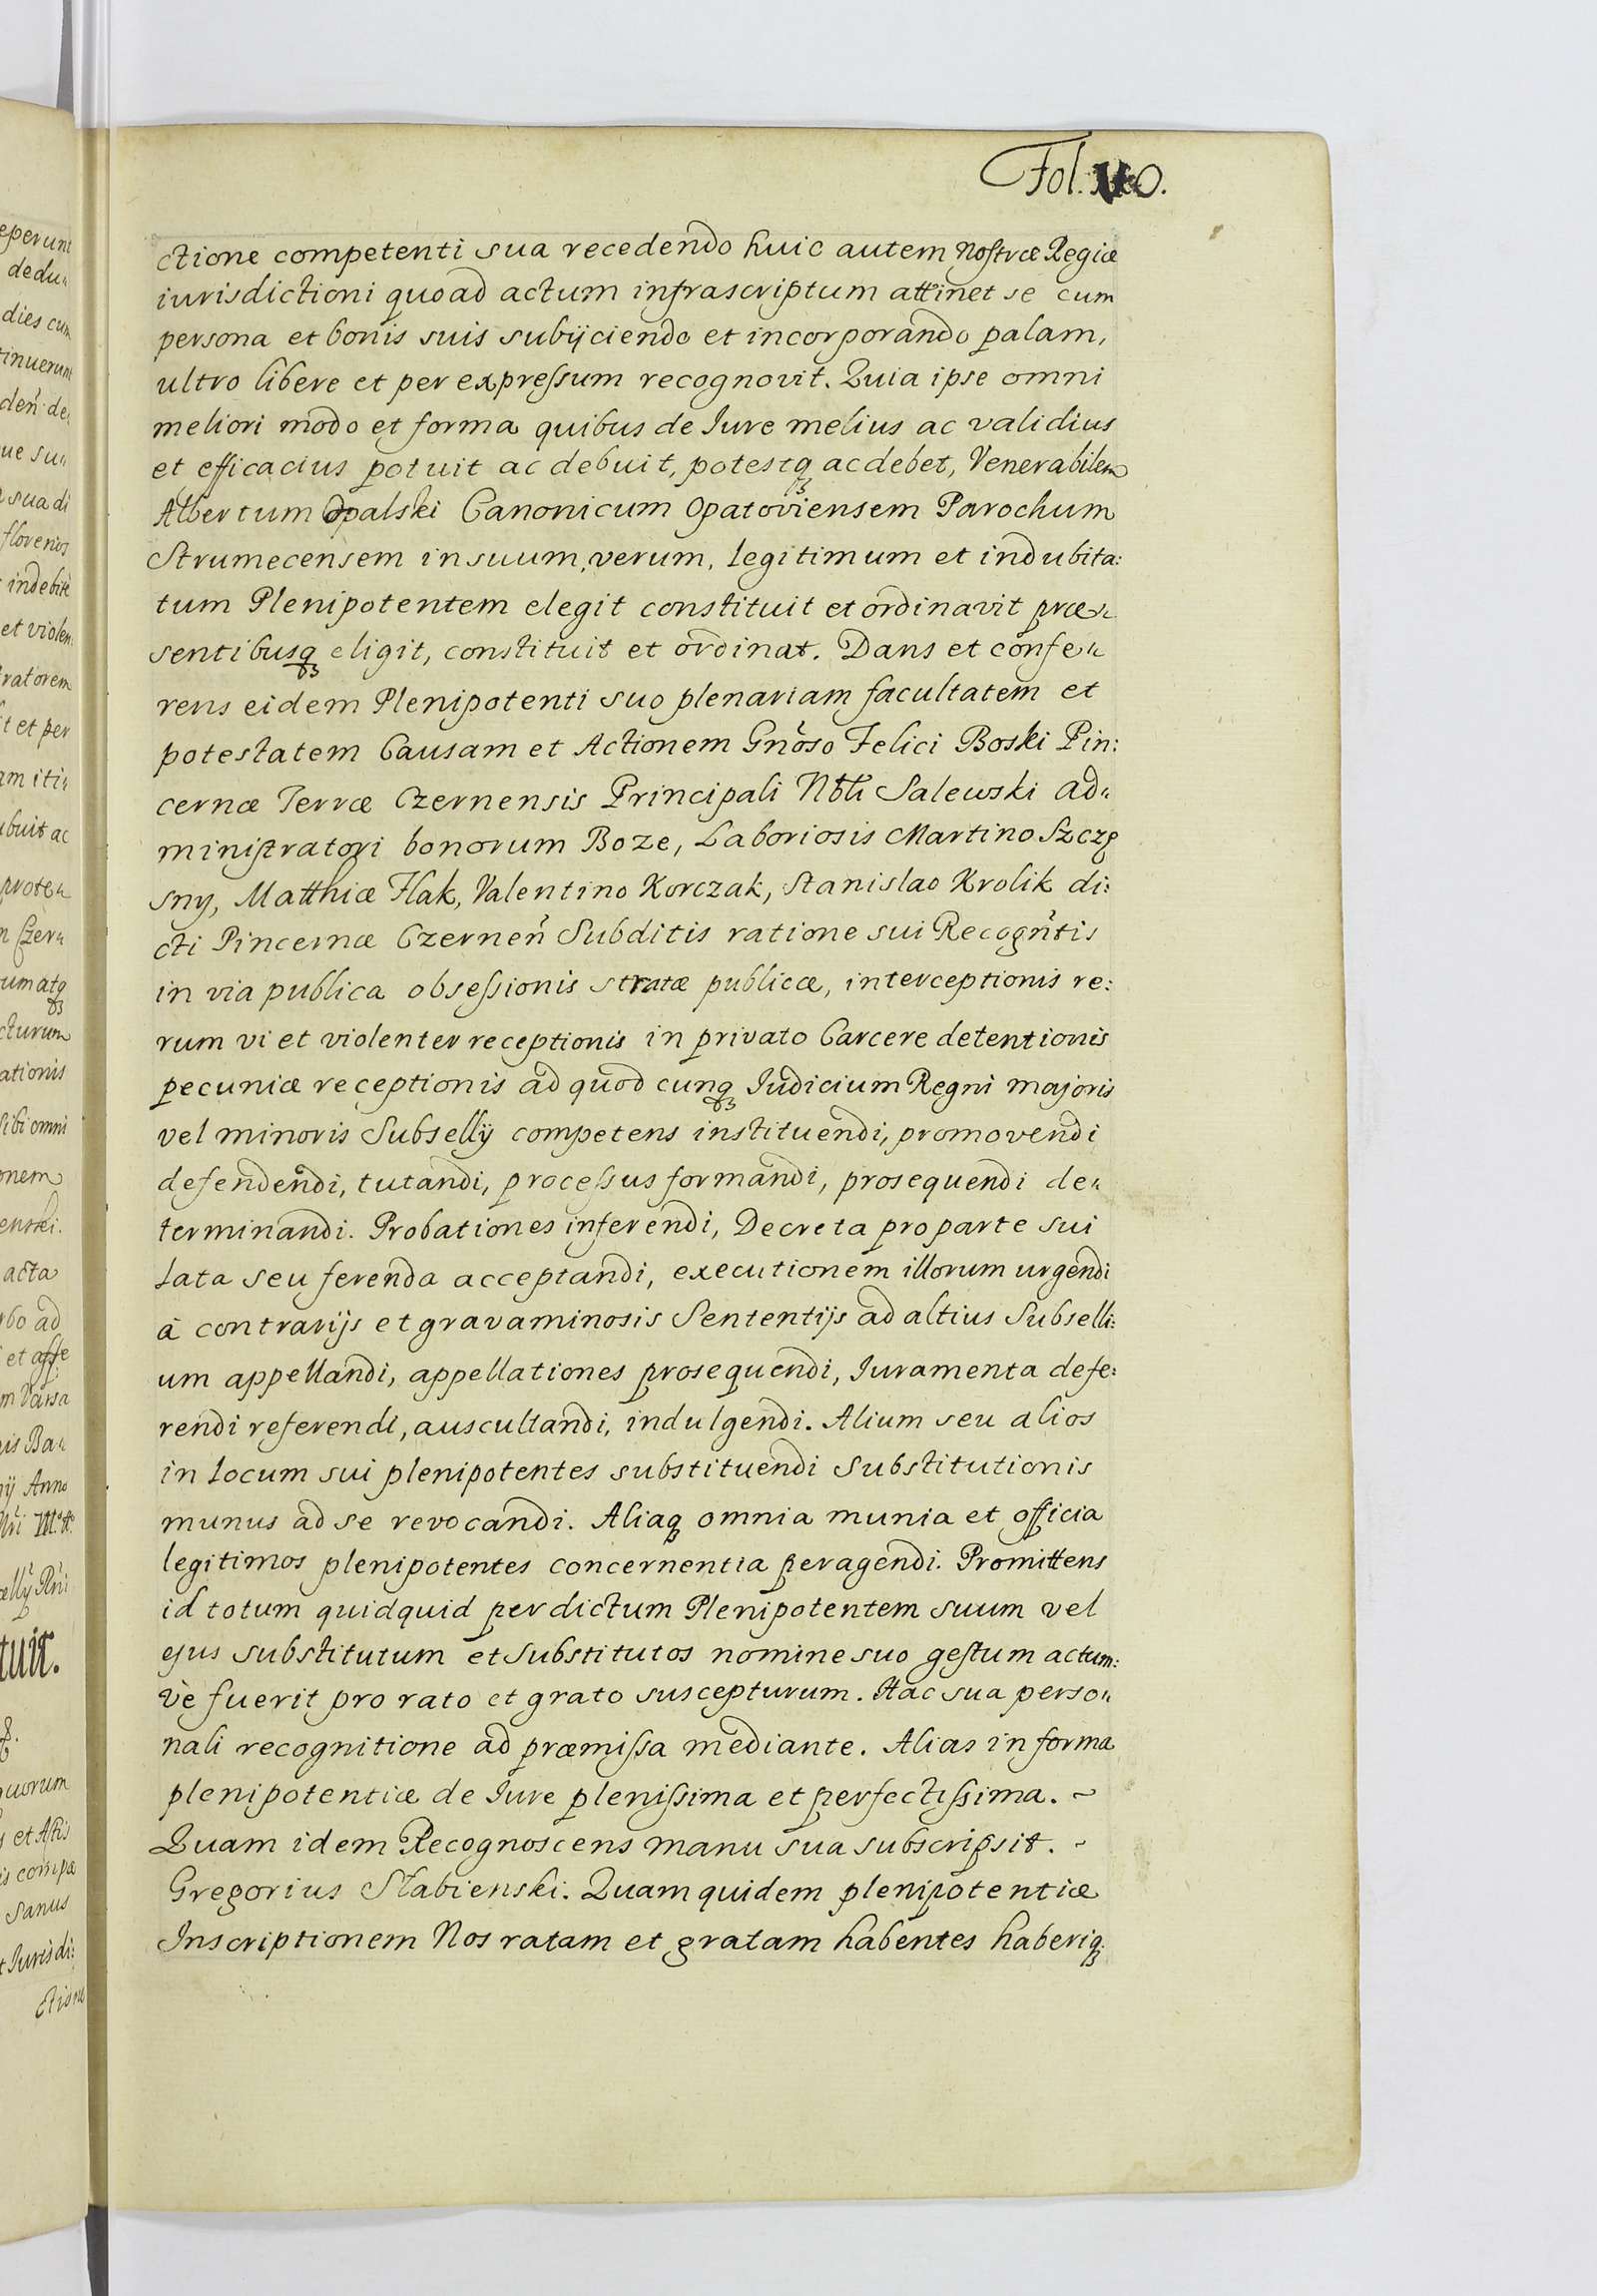 Fol.
ctione competenti sua recedendo huic autem Nostræ Regiæ
iurisdictioni quoad actum infrascriptum attinet se cum
persona et bonis suis subijciendo et incorporando palam,
ultro libere et per expressum recognovit. Quia ipse omni
meliori modo et forma quibus de Iure melius ac validius
et efficacius potuit ac debuit, potestq₃ ac debet, Venerabilem
Albertum Opalski Canonicum Opatoviensem Parochum
Strumecensem in suum, verum, legitimum et indubita:
tum Plenipotentem elegit constituit et ordinavit præ„
sentibusq₃ eligit, constituit et ordinat. Dans et confe„
rens eidem Plenipotenti suo plenariam facultatem et
potestatem Causam et Actionem Gnoso Felici Boski Pin:
cernæ Terræ Czernensis Principali Nbli Salewski ad„
ministratori bonorum Boze, Laboriosis Martino Szczę
sny, Matthiæ Flak, Valentino Korczak, Stanislao Krolik di:
cti Pincernæ Czernen Subditis ratione sui Recogntis
in via publica obsessionis stratæ publicæ, interceptionis re:
rum vi et violenter receptionis in privato Carcere detentionis
pecuniæ receptionis ad quod cunq₃ Iudicium Regni majoris
vel minoris Subsellij competens instituendi, promovendi
defendendi, tutandi, processus formandi, prosequendi de„
terminandi. Probationes inferendi, Decreta pro parte sui
lata seu ferenda acceptandi, executionem illorum urgendi
à contrarijs et gravaminosis Sententijs ad altius Subselli:
um appellandi, appellationes prosequendi, Iuramenta defe:
rendi referendi, auscultandi, indulgendi. Alium seu alios
in locum sui plenipotentes substituendi Substitutionis
munus ad se revocandi. Aliaq₃ omnia munia et officia
legitimos plenipotentes concernentia peragendi. Promittens
id totum quidquid per dictum Plenipotentem suum vel
ejus substitutum et Substitutos nomine suo gestum actum:
vè fuerit pro rato et grato suscepturum. Hac sua perso„
nali recognitione ad præmissa mediante. Alias in forma
plenipotentiæ de Iure plenissima et perfectissima. ~
Quam idem Recognoscens manu sua subscripsit. ~
Gregorius Slabienski. Quam quidem plenipotentiæ
Inscriptionem Nos ratam et gratam habentes haberiq₃